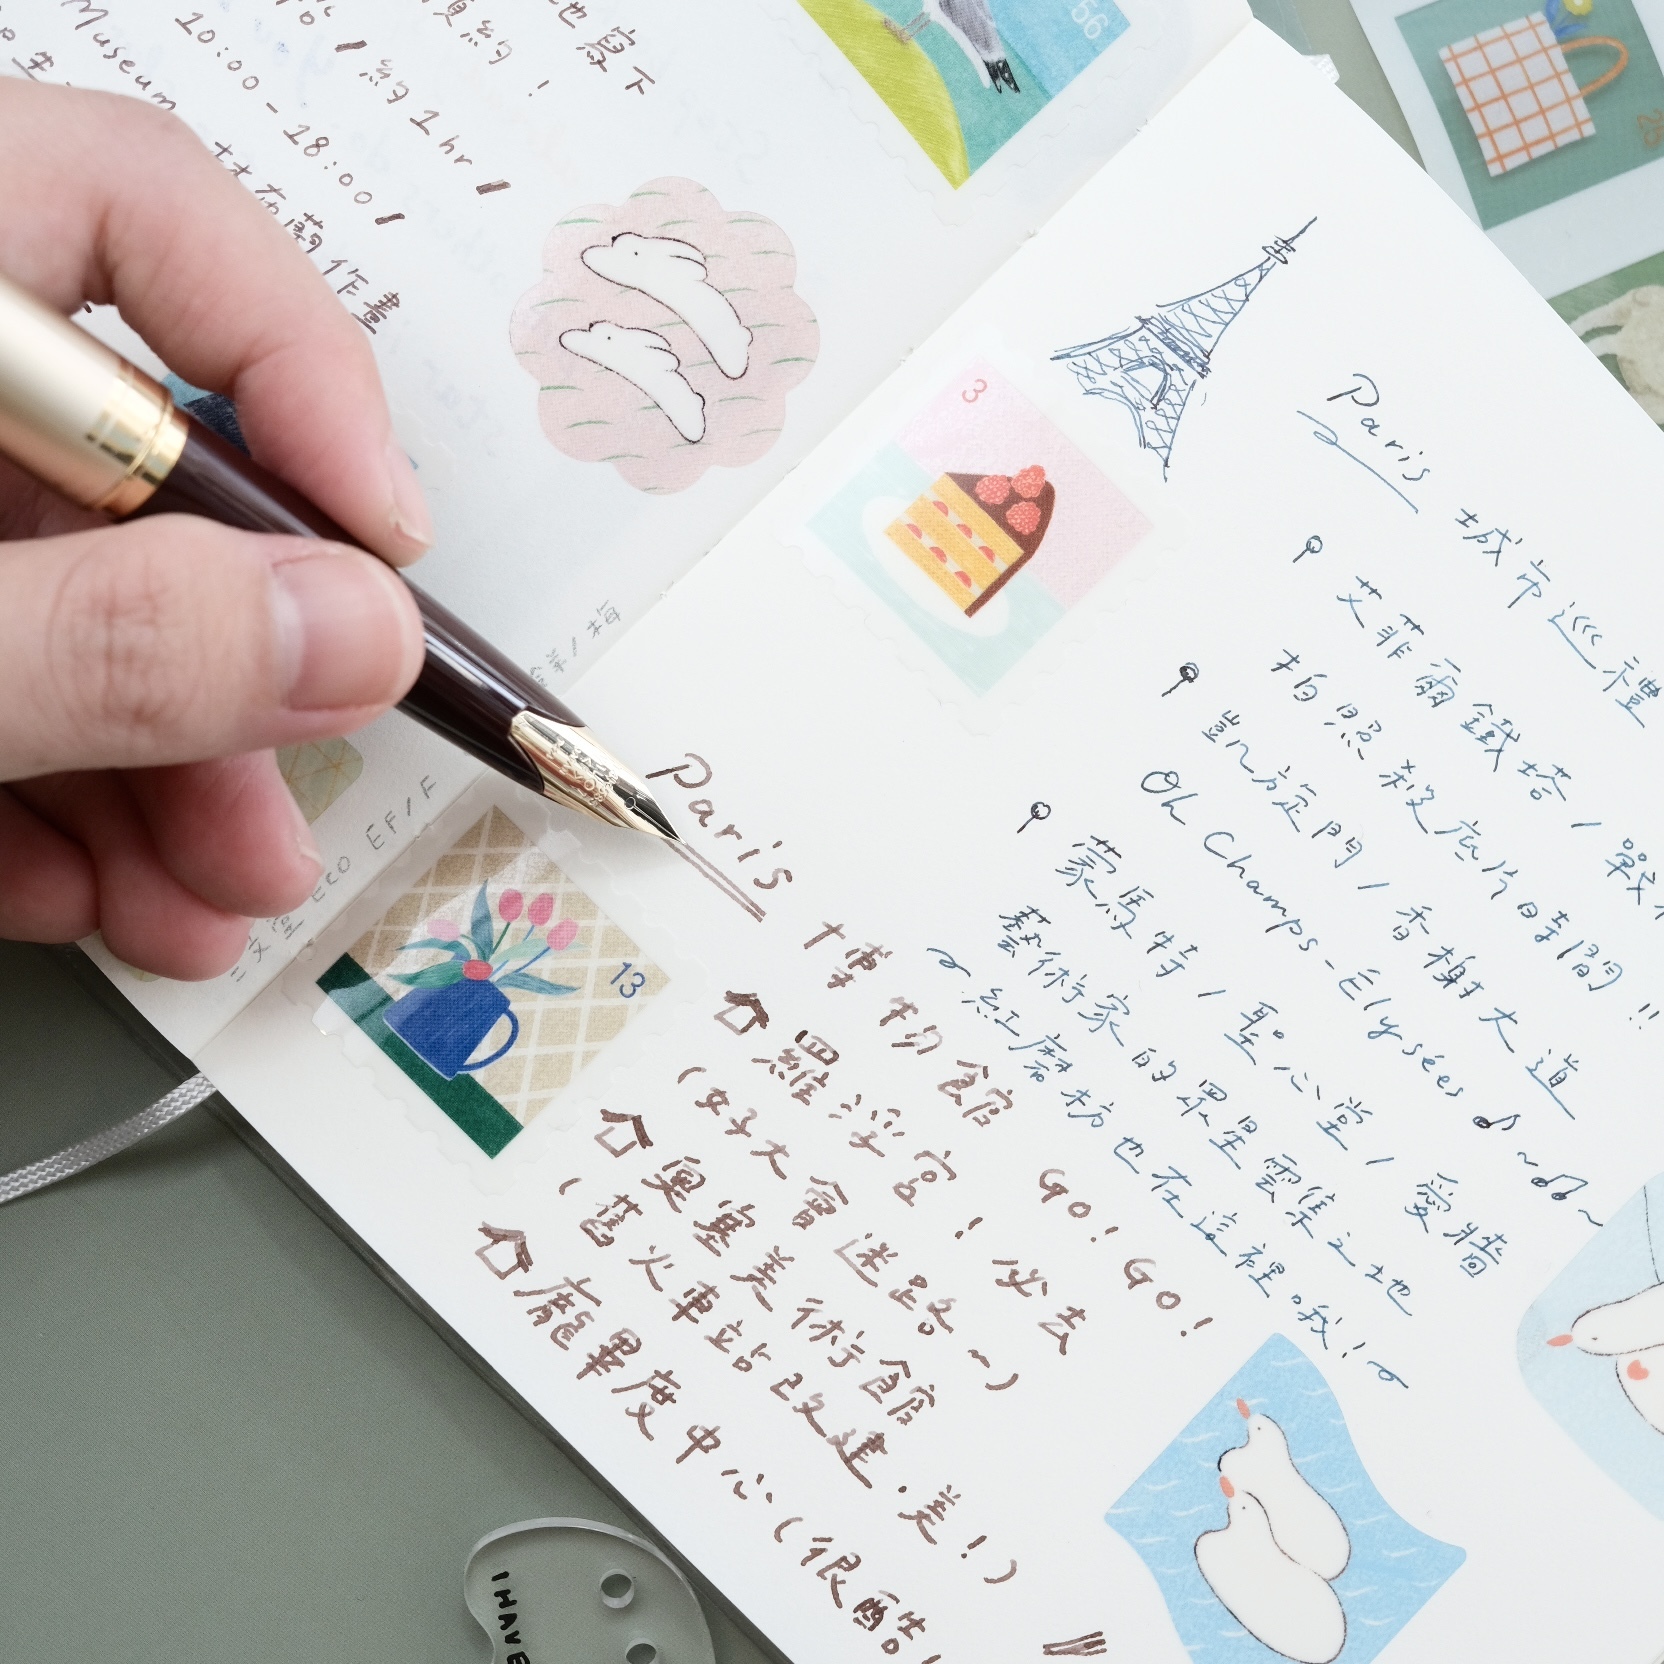 也寫下
預約!
/ 約1hr
10:00-18:00
Museum
作畫
56
3
Paris
城市巡禮
艾菲爾鐵塔 /
拍照殺底片時間!!
凱旋門 / 香榭大道
Oh Champs-Élysées ♪~♫~
蒙馬特 / 聖心堂 / 愛牆
藝術家的眾星雲集之地
~紅磨坊也在這裡哦!~
Paris
博物館 GO! GO!
羅浮宮! 必去
(女子大會迷路~)
奧塞美術館
(舊火車站改建.美!)
龐畢度中心(很酷!
13
三文堂 ECO EF/F
I HAVE